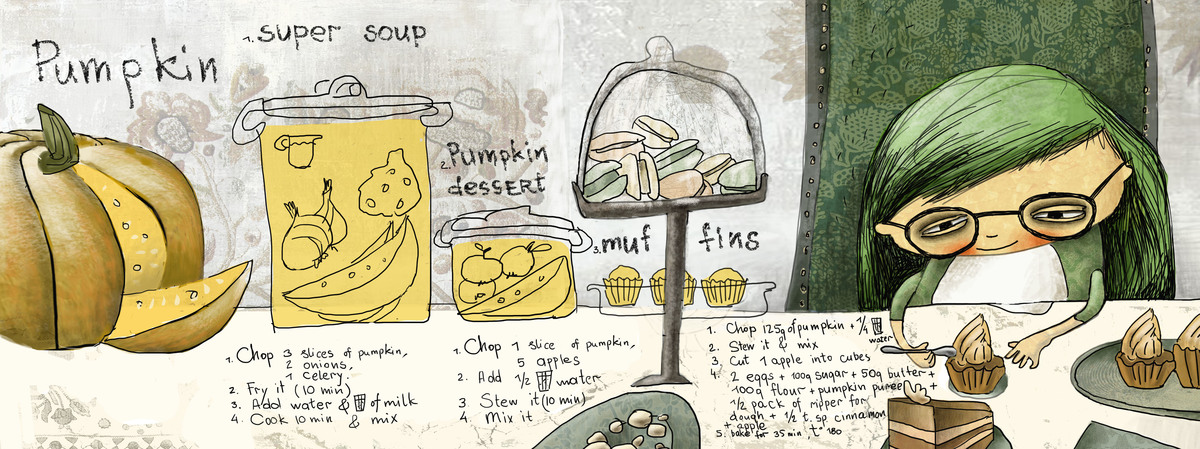 Pumpkin
1. super soup
1. Chop 3 slices of pumpkin,
2 onions,
1 celery.
2. Fry it (10 min)
3. Add water & of milk
4. Cook 10 min & mix
2. Pumpkin
dessert
1. Chop 1 slice of pumpkin,
5 apples
2. Add 1/2 water
3. Stew it (10 min)
4. Mix it
3. muffins
1. Chop 125g of pumpkin + 1/4
water
2. Stew it & mix
3. Cut 1 apple into cubes
4. 2 eggs + 100g sugar + 50g butter +
100g flour + pumpkin puree +
1/2 pack of ripper for
dough + 1/2 t.sp cinnamon
+ apple
5. bake for 35 min, t° 180